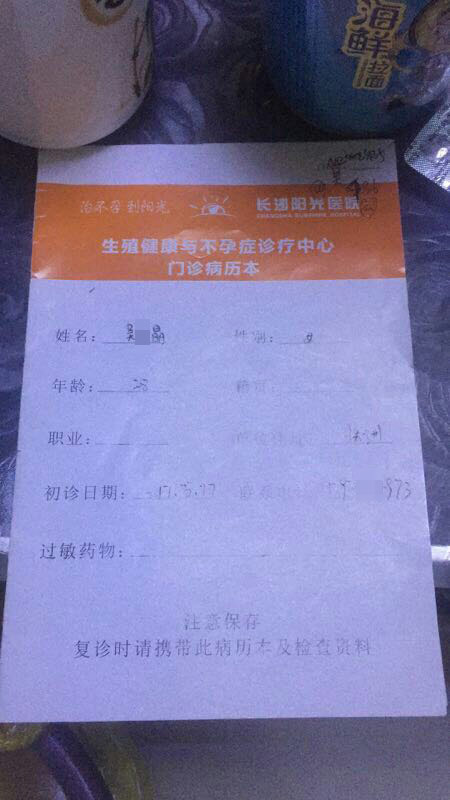 海鲜
拉面
治不孕 到阳光
长沙阳光医院
CHANGSHA SUNSHINE HOSPITAL
生殖健康与不孕症诊疗中心
门诊病历本
姓名：吴 晶 性别：女
年龄：28 籍贯：
职业：
初诊日期：17.5.17 973
过敏药物：
注意保存
复诊时请携带此病历本及检查资料